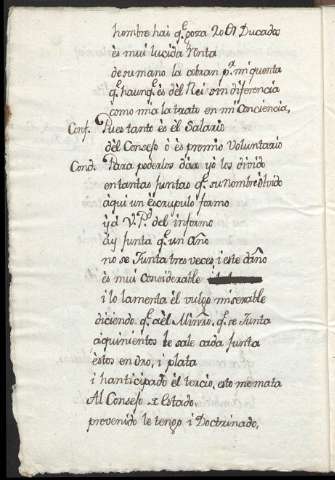 hombre hai q.e goza 20 Ɵ Ducados,
ès mui lucida Renta
de su mano la cobran p.r mi quenta
q.e haunq.e ès del Rei sin diferencia
como mia la trato en mi Conciencia,
Conf. Pues tanto ès èl Salario
del Consejo ò ès premio Voluntario
Cond. Para poderlos dàr yò los divido
en tantas Juntas q.e su nombre òlvido
àqui un èscrupulo formo
y à V. P.d del informo
ay Junta q.e un Año
no se Junta tres veces, i èste daño
ès mui considerable
i lo lamenta èl vulgo miserable
diciendo q.e àèl Minro. q.e se Junta
à quinientos le sale cada Junta
èstos en Oro, i plata
i hanticipado èl tercio, esto me mata
Al Consejo de Estado
prevenido le tengo i Doctrinado,